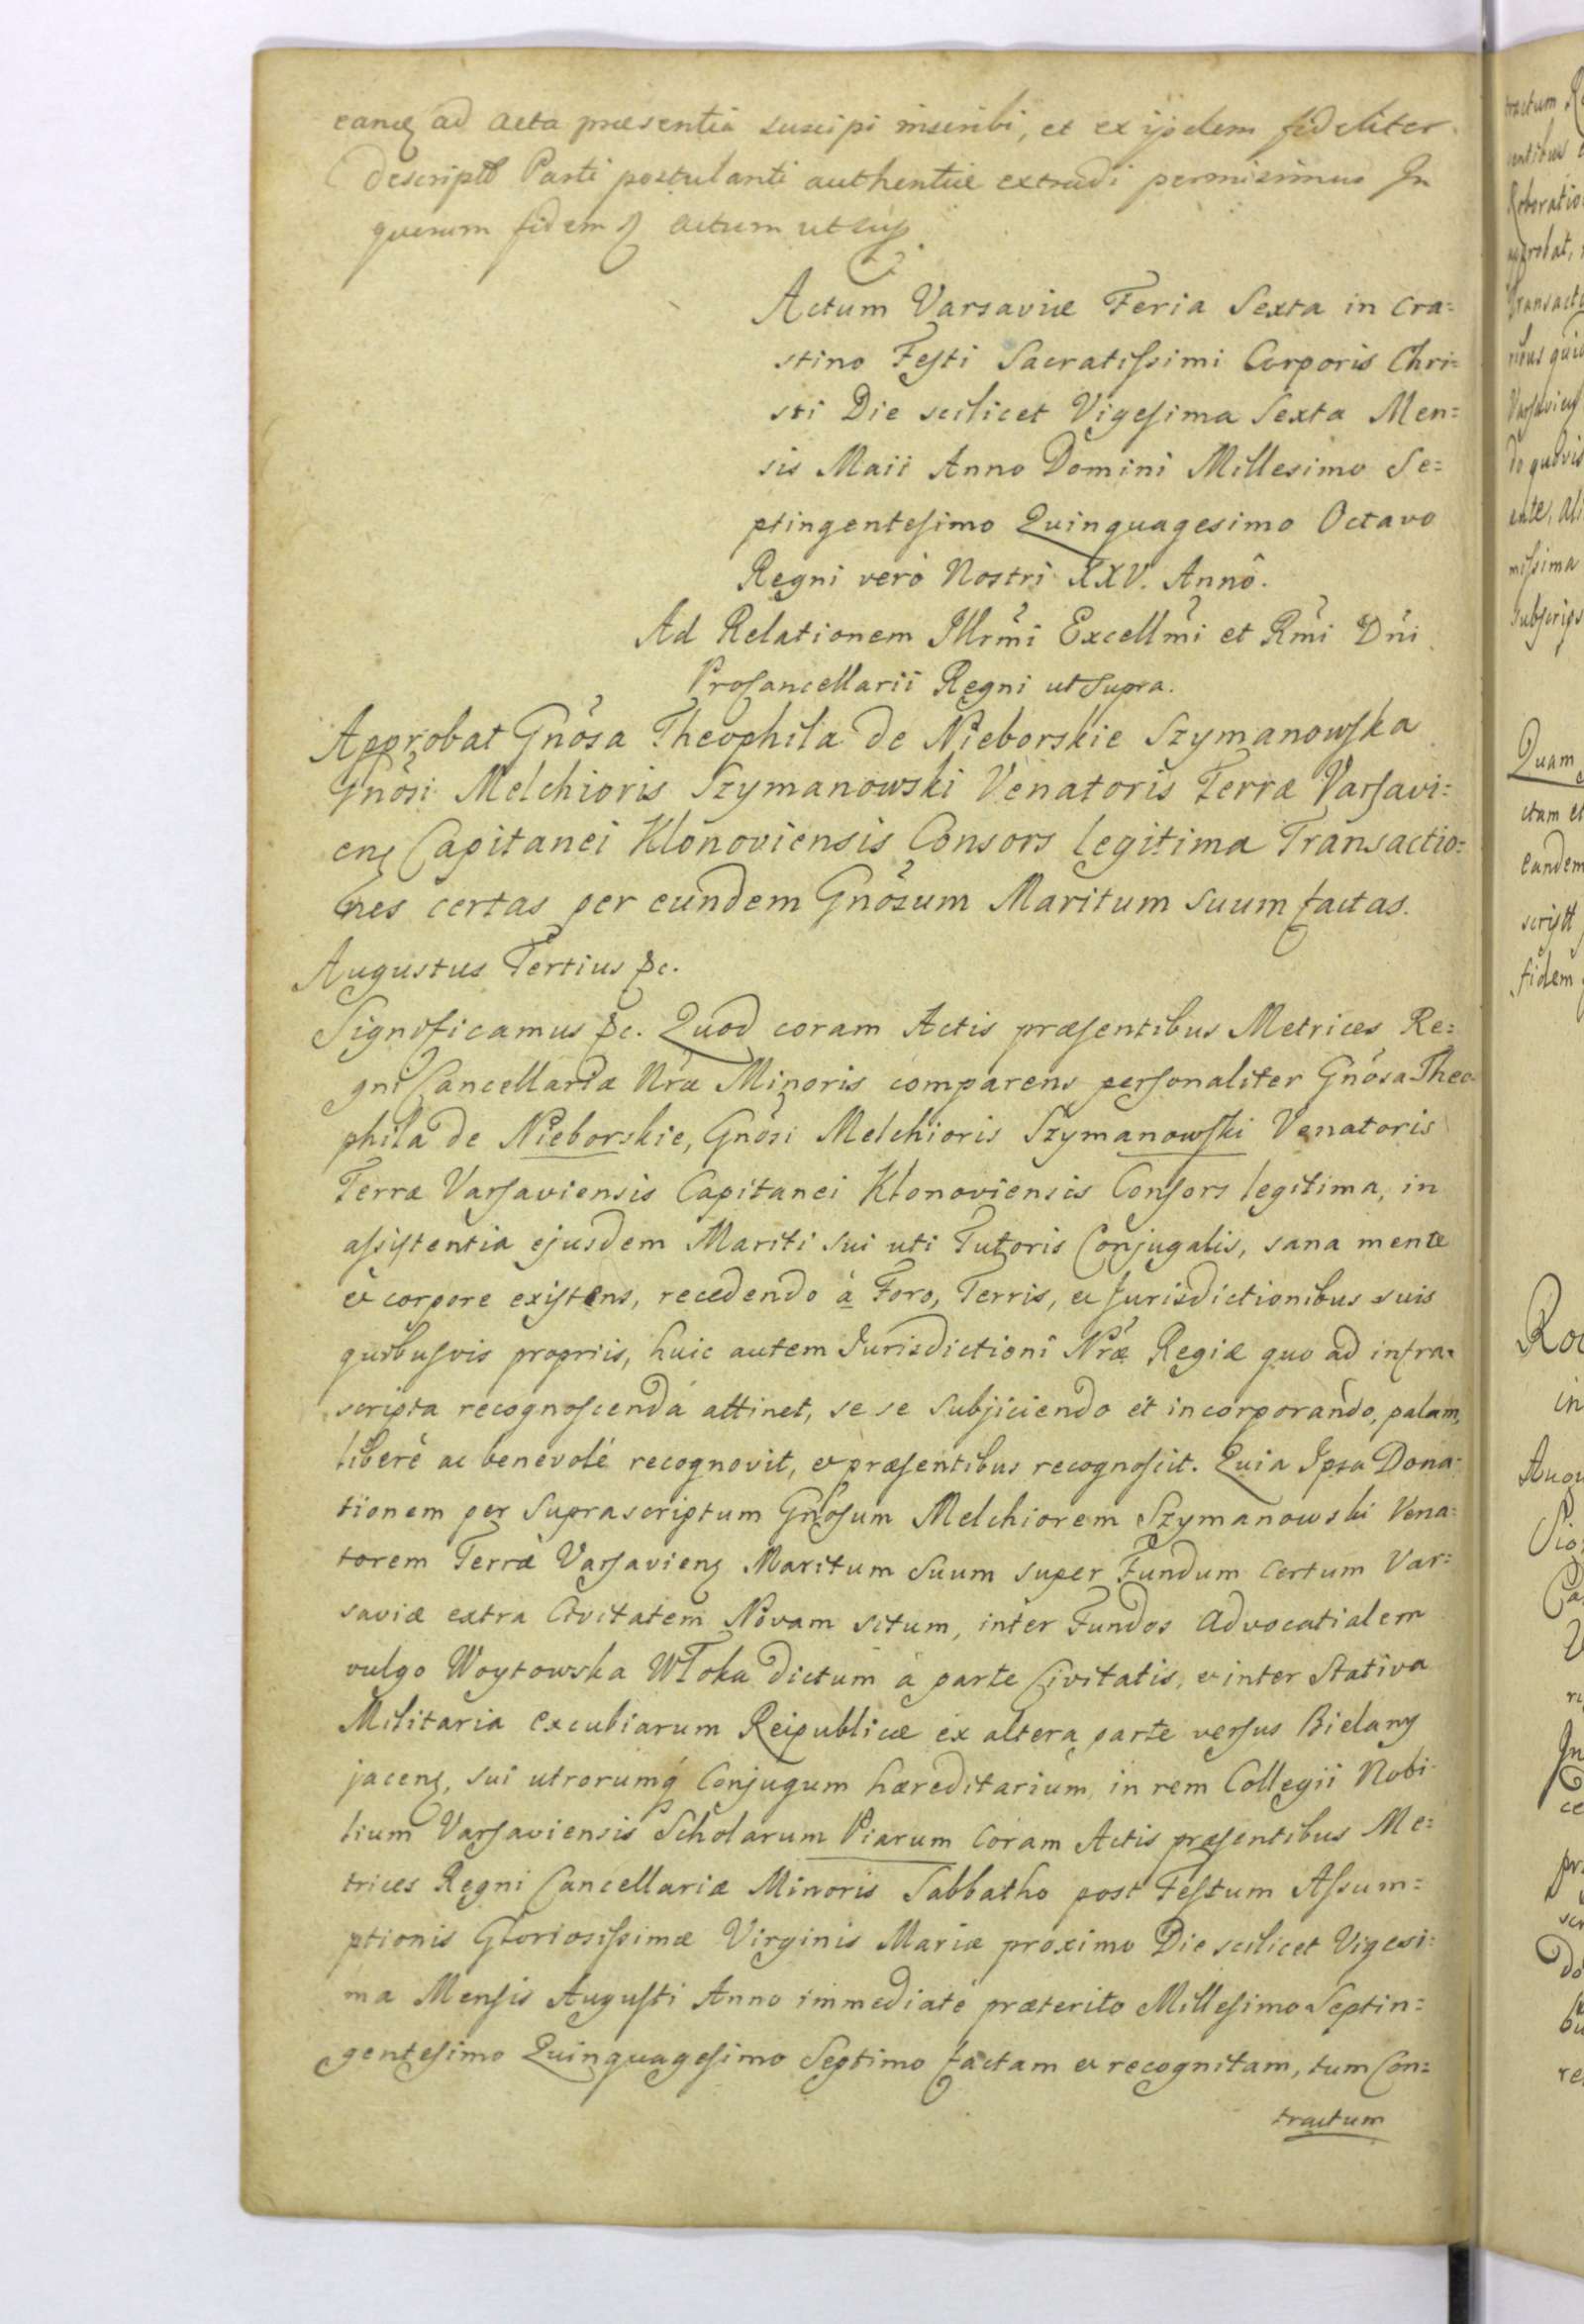 eamq ad Acta præsentia suscipi inscribi, et ex ijsdem fideliter
descriptā Parti postulanti authentice extradi permisimus In
quorum fidem &c Actum ut sup.
Actum Varsaviæ Feria Sexta in Cra=
stino Festi Sacratissimi Corporis Chri=
sti Die scilicet Vigesima Sexta Men=
sis Maii Anno Domini Millesimo Se=
ptingentesimo Quinquagesimo Octavo
Regni verò Nostri XXV. Annô.
Ad Relationem Illrmi Excellmi et Rmi Dni
Procancellarii Regni ut Supra.
Approbat Gnosa Theophila de Nieborskie Szymanowska
Gnosi Melchioris Szymanowski Venatoris Terræ Varsavi=
ens Capitanei Klonoviensis Consors legitima Transactio=
nes certas per eundem Gnosum Maritum Suum factas.
Augustus Tertius &c.
Significamus &c. Quod coram Actis præsentibus Metrices Re=
gni Cancellariæ Nræ Minoris comparens personaliter Gnosa Theo=
phila de Nieborskie, Gnosi Melchioris Szymanowski Venatoris
Terræ Varsaviensis Capitanei Klonoviensis Consors legitima, in
assistentia ejusdem Mariti sui uti Tutoris Conjugalis, sana mente
et corpore existens, recedendo à Foro, Terris, et Jurisdictionibus suis
quibusvis propriis, huic autem Jurisdictioni Nræ Regiæ quo ad infra=
scripta recognoscenda attinet, se se Subjiciendo et incorporando, palam,
liberè ac benevolè recognovit, et præsentibus recognoscit. Quia Ipsa Dona=
tionem per Suprascriptum Gnosum Melchiorem Szymanowski Vena=
torem Terræ Varsaviens Maritum Suum super Fundum certum Var=
saviæ extra Civitatem Novam situm, inter Fundos Advocatialem
vulgo Woytowska Włoka dictum à parte Civitatis, et inter Stativa
Militaria excubiarum Reipublicæ ex altera parte versus Bielany
jacens, sui utrorumq Conjugum hæreditarium, in rem Collegii Nobi=
lium Varsaviensis Scholarum Piarum coram Actis præsentibus Me=
trices Regni Cancellariæ Minoris Sabbatho post Festum Assum=
ptionis Gloriosissimæ Virginis Mariæ proximo Die scilicet Vigesi=
ma Mensis Augusti Anno immediatè præterito Millesimo Septin=
gentesimo Quinquagesimo Septimo factam et recognitam, tum Con=
tractum